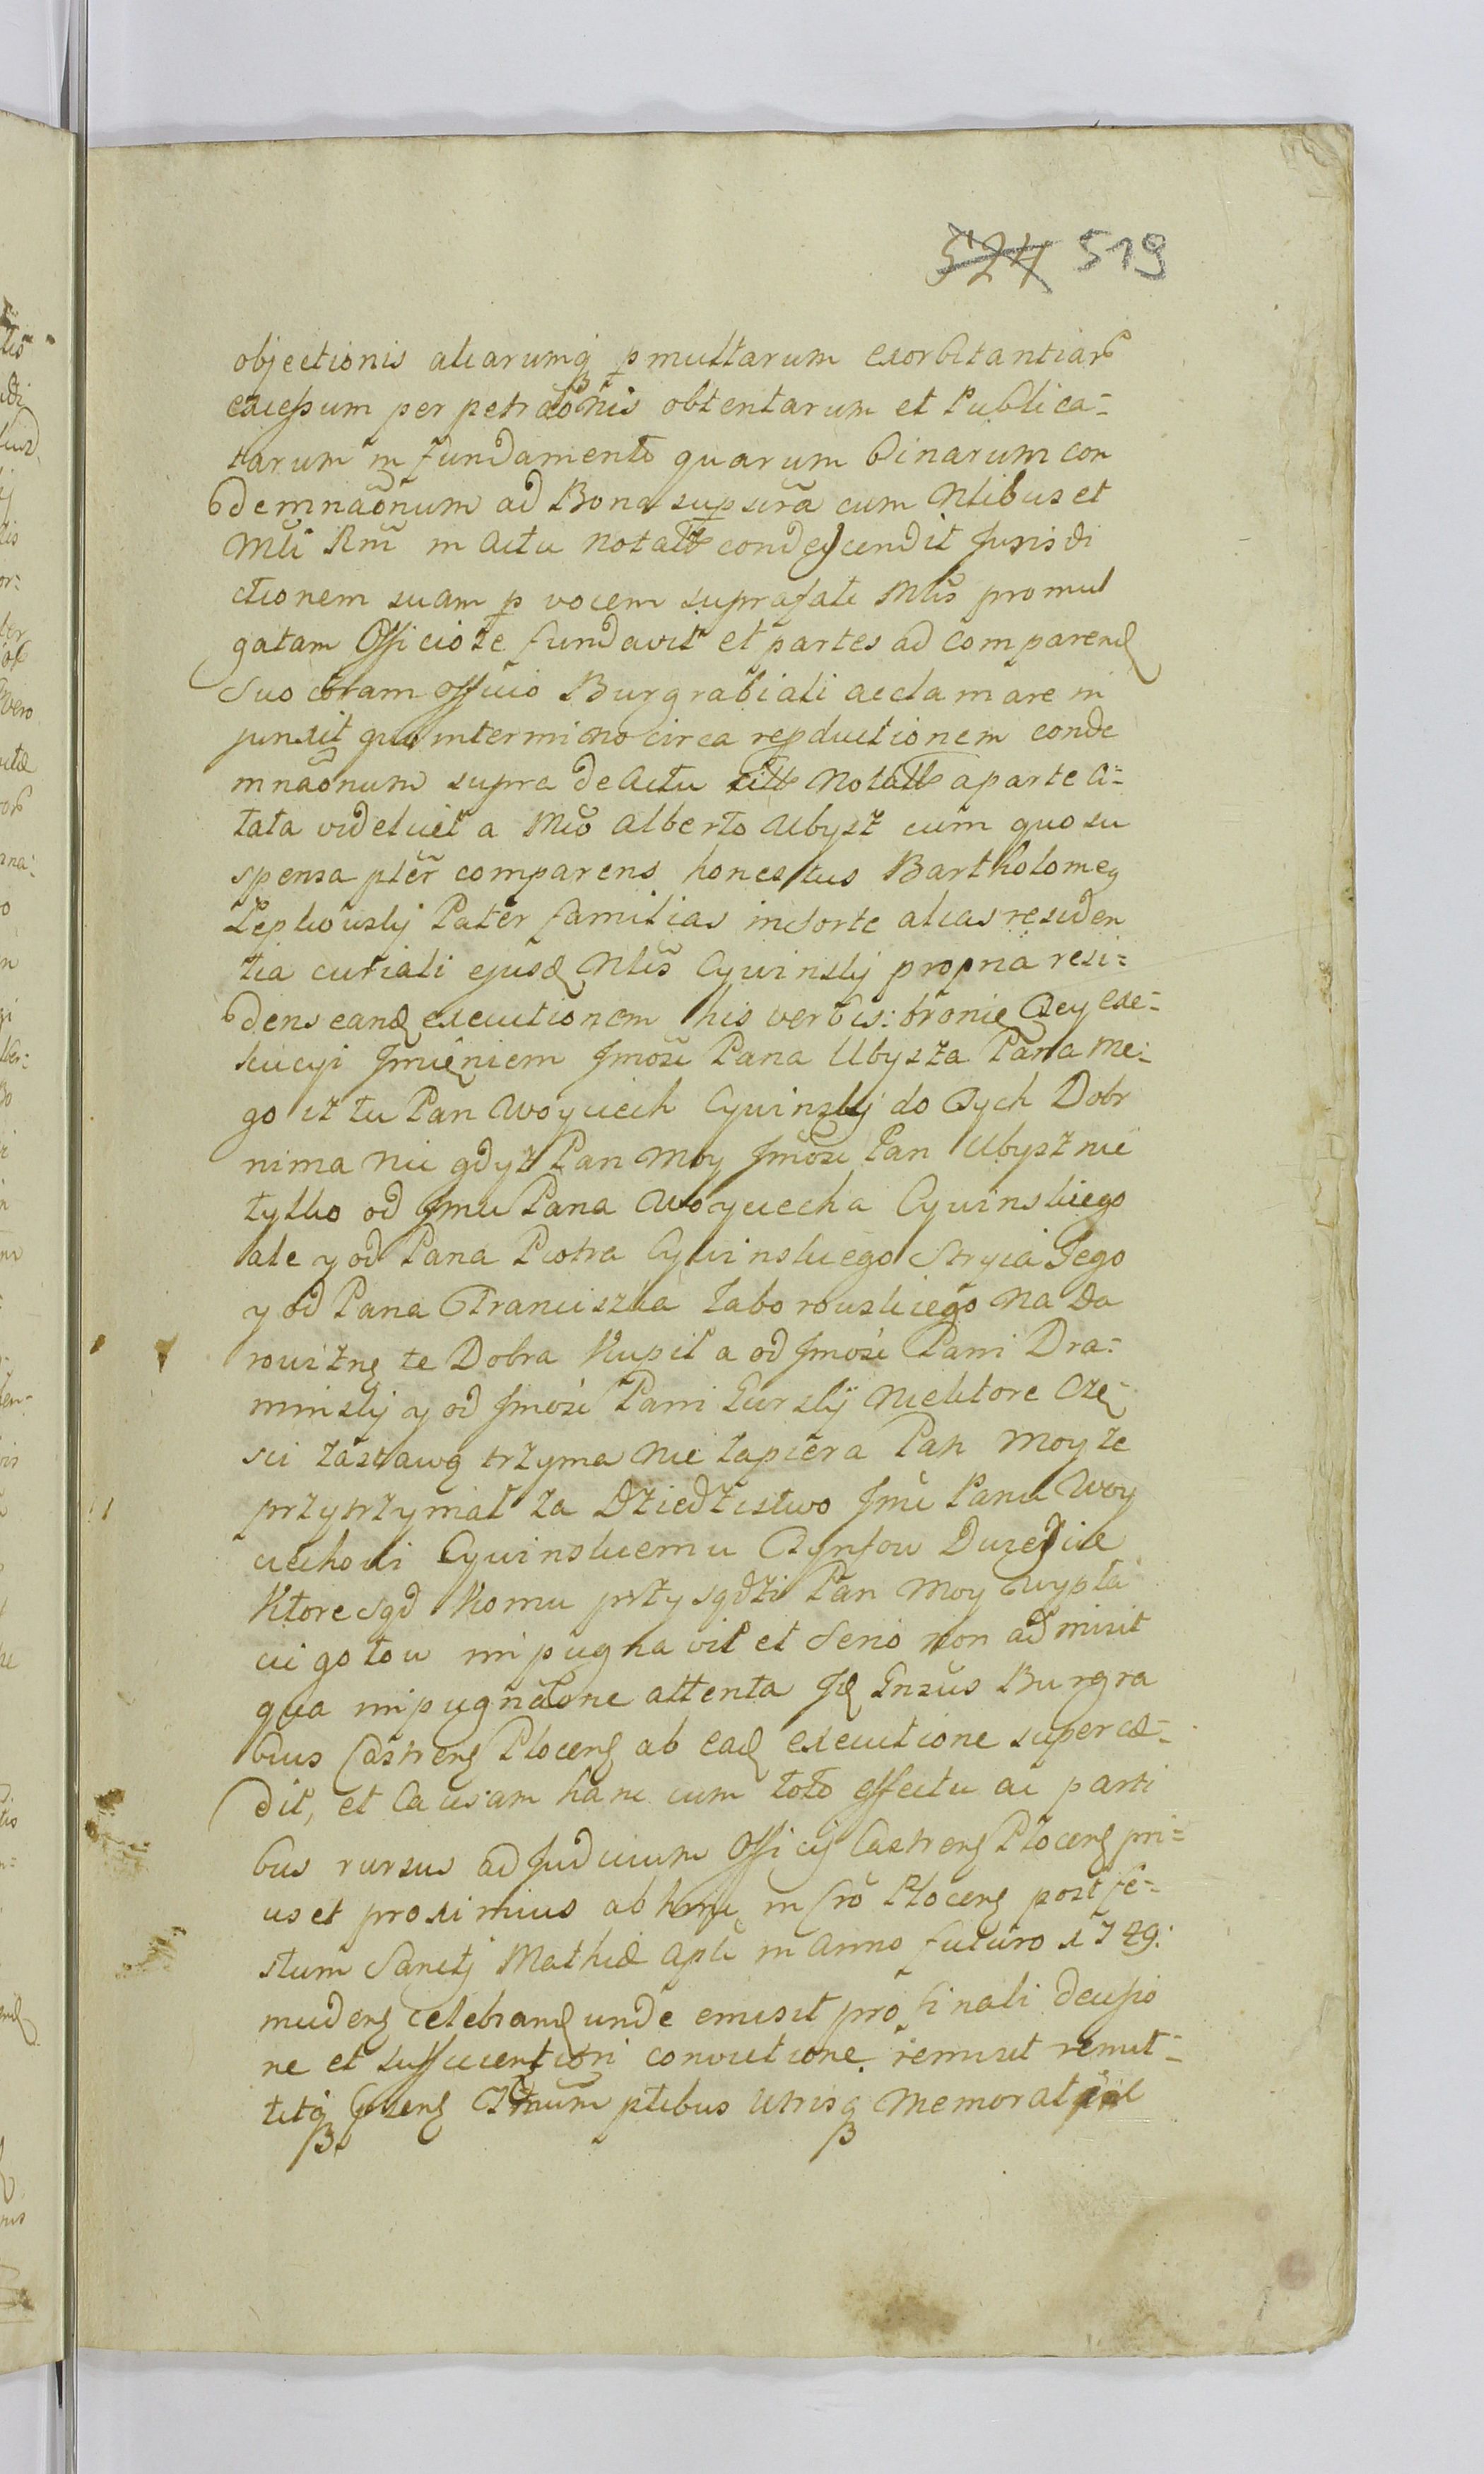 524 519
objectionis aliarumq̨ p multarum exorbitantiarũ
excessum perpetraõnis obtentarum et Publica=
tarum in fundamento quarum binarum con
demnaõnum ad Bona sup scr̃a cum Nlibus et
Mti Rm̃ in Actu notatt condescendit Jurisdi
ctionem suam p vocem suprafati Mlis promul
gatam Officiose fundavit et partes ad comparend
Suo coram officio Burgrabiali acclamare in
junxit quo intermino circa repductionem conde
mnaõnum supra de Actu citt Notatt a parte ci=
tata videlicet a Mco Alberto Ubysz cum quo su
spensa ptẽr comparens honestus Bartholomeg
Lepkowskij Pater familias in sorte alias residen
tia curiali ejusd Nlis Cywinskij propria resi=
dens eand executionem his verbis: bronię Tey exe=
kucyi Jmięniem Jmosci Pana Ubysza Pana me=
go iz tu Pan Woyciech Cywinskij do Tych Dobr
nima nic gdyz Pan Moy Jmosci Pan Ubysz nie
tylko od Jmci Pana Woyciecha Cywinskiego
ale y od Pana Piotra Cywinskiego Stryia Jego
y od Pana Franciszka Zaborowskiego na Da
rowiznę te Dobra Kupił a od Jmosci Pani Dra=
minskij y od Jmosci Pani Gurskij niektore Czę=
sci zastawą trzyma nie zapiera Pan Moy ze
przytrzymał za Dziedzistwo Jmci Panu Woy
ciechowi Cywinskiemu Tynfow Dwiescie
Ktore sąd komu przysądzi Pan Moy wypła
cic gotow impugnavit et Serio non admisit
qua impugnaõne attenta Jd Gnsus Burgra
bius Castrens Plocens ab ead executione superce=
dit, et Causam hanc cum toto effectu ac parti
bus rursus ad Judicium Officij Castrens Plocens pri=
us et proximius ab hinc in Cro Plocens post fe=
stum Sancti Mathiæ Apli in Anno futuro 1749:
iudens celebrand unde emisit pro finali decisio
ne et sufficientiori convictione remisit remit=
titq̨ prsens Trnum ptibus utrisq̨ memorat